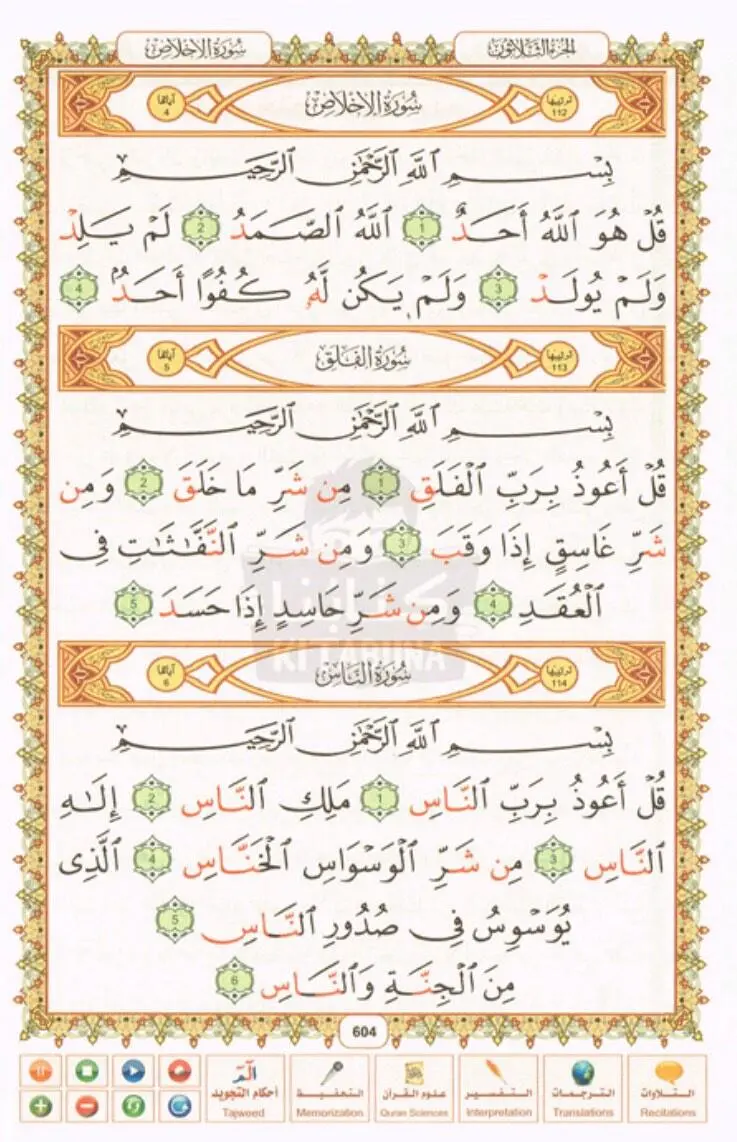 الجزء الثلاثون
سورة الإخلاص
ترتيبها 112
سُورَةُ الإِخْلَاصِ
آياتها 4
بِسْمِ ٱللَّهِ ٱلرَّحْمَٰنِ ٱلرَّحِيمِ
قُلْ هُوَ ٱللَّهُ أَحَدٌ 1 ٱللَّهُ ٱلصَّمَدُ 2 لَمْ يَلِدْ
وَلَمْ يُولَدْ 3 وَلَمْ يَكُن لَّهُۥ كُفُوًا أَحَدٌۢ 4
ترتيبها 113
سُورَةُ الفَلَقِ
آياتها 5
بِسْمِ ٱللَّهِ ٱلرَّحْمَٰنِ ٱلرَّحِيمِ
قُلْ أَعُوذُ بِرَبِّ ٱلْفَلَقِ 1 مِن شَرِّ مَا خَلَقَ 2 وَمِن
شَرِّ غَاسِقٍ إِذَا وَقَبَ 3 وَمِن شَرِّ ٱلنَّفَّٰثَٰتِ فِى
ٱلْعُقَدِ 4 وَمِن شَرِّ حَاسِدٍ إِذَا حَسَدَ 5
كتابنا
KITABUNA
ترتيبها 114
سُورَةُ النَّاسِ
آياتها 6
بِسْمِ ٱللَّهِ ٱلرَّحْمَٰنِ ٱلرَّحِيمِ
قُلْ أَعُوذُ بِرَبِّ ٱلنَّاسِ 1 مَلِكِ ٱلنَّاسِ 2 إِلَٰهِ
ٱلنَّاسِ 3 مِن شَرِّ ٱلْوَسْوَاسِ ٱلْخَنَّاسِ 4 ٱلَّذِى
يُوَسْوِسُ فِى صُدُورِ ٱلنَّاسِ 5
مِنَ ٱلْجِنَّةِ وَٱلنَّاسِ 6
604
الٓمٓ
التلاوات
الترجمات
التفسير
علوم القرآن
التحفيظ
أحكام التجويد
Recitations
Translations
Interpretation
Quran Sciences
Memorization
Tajweed